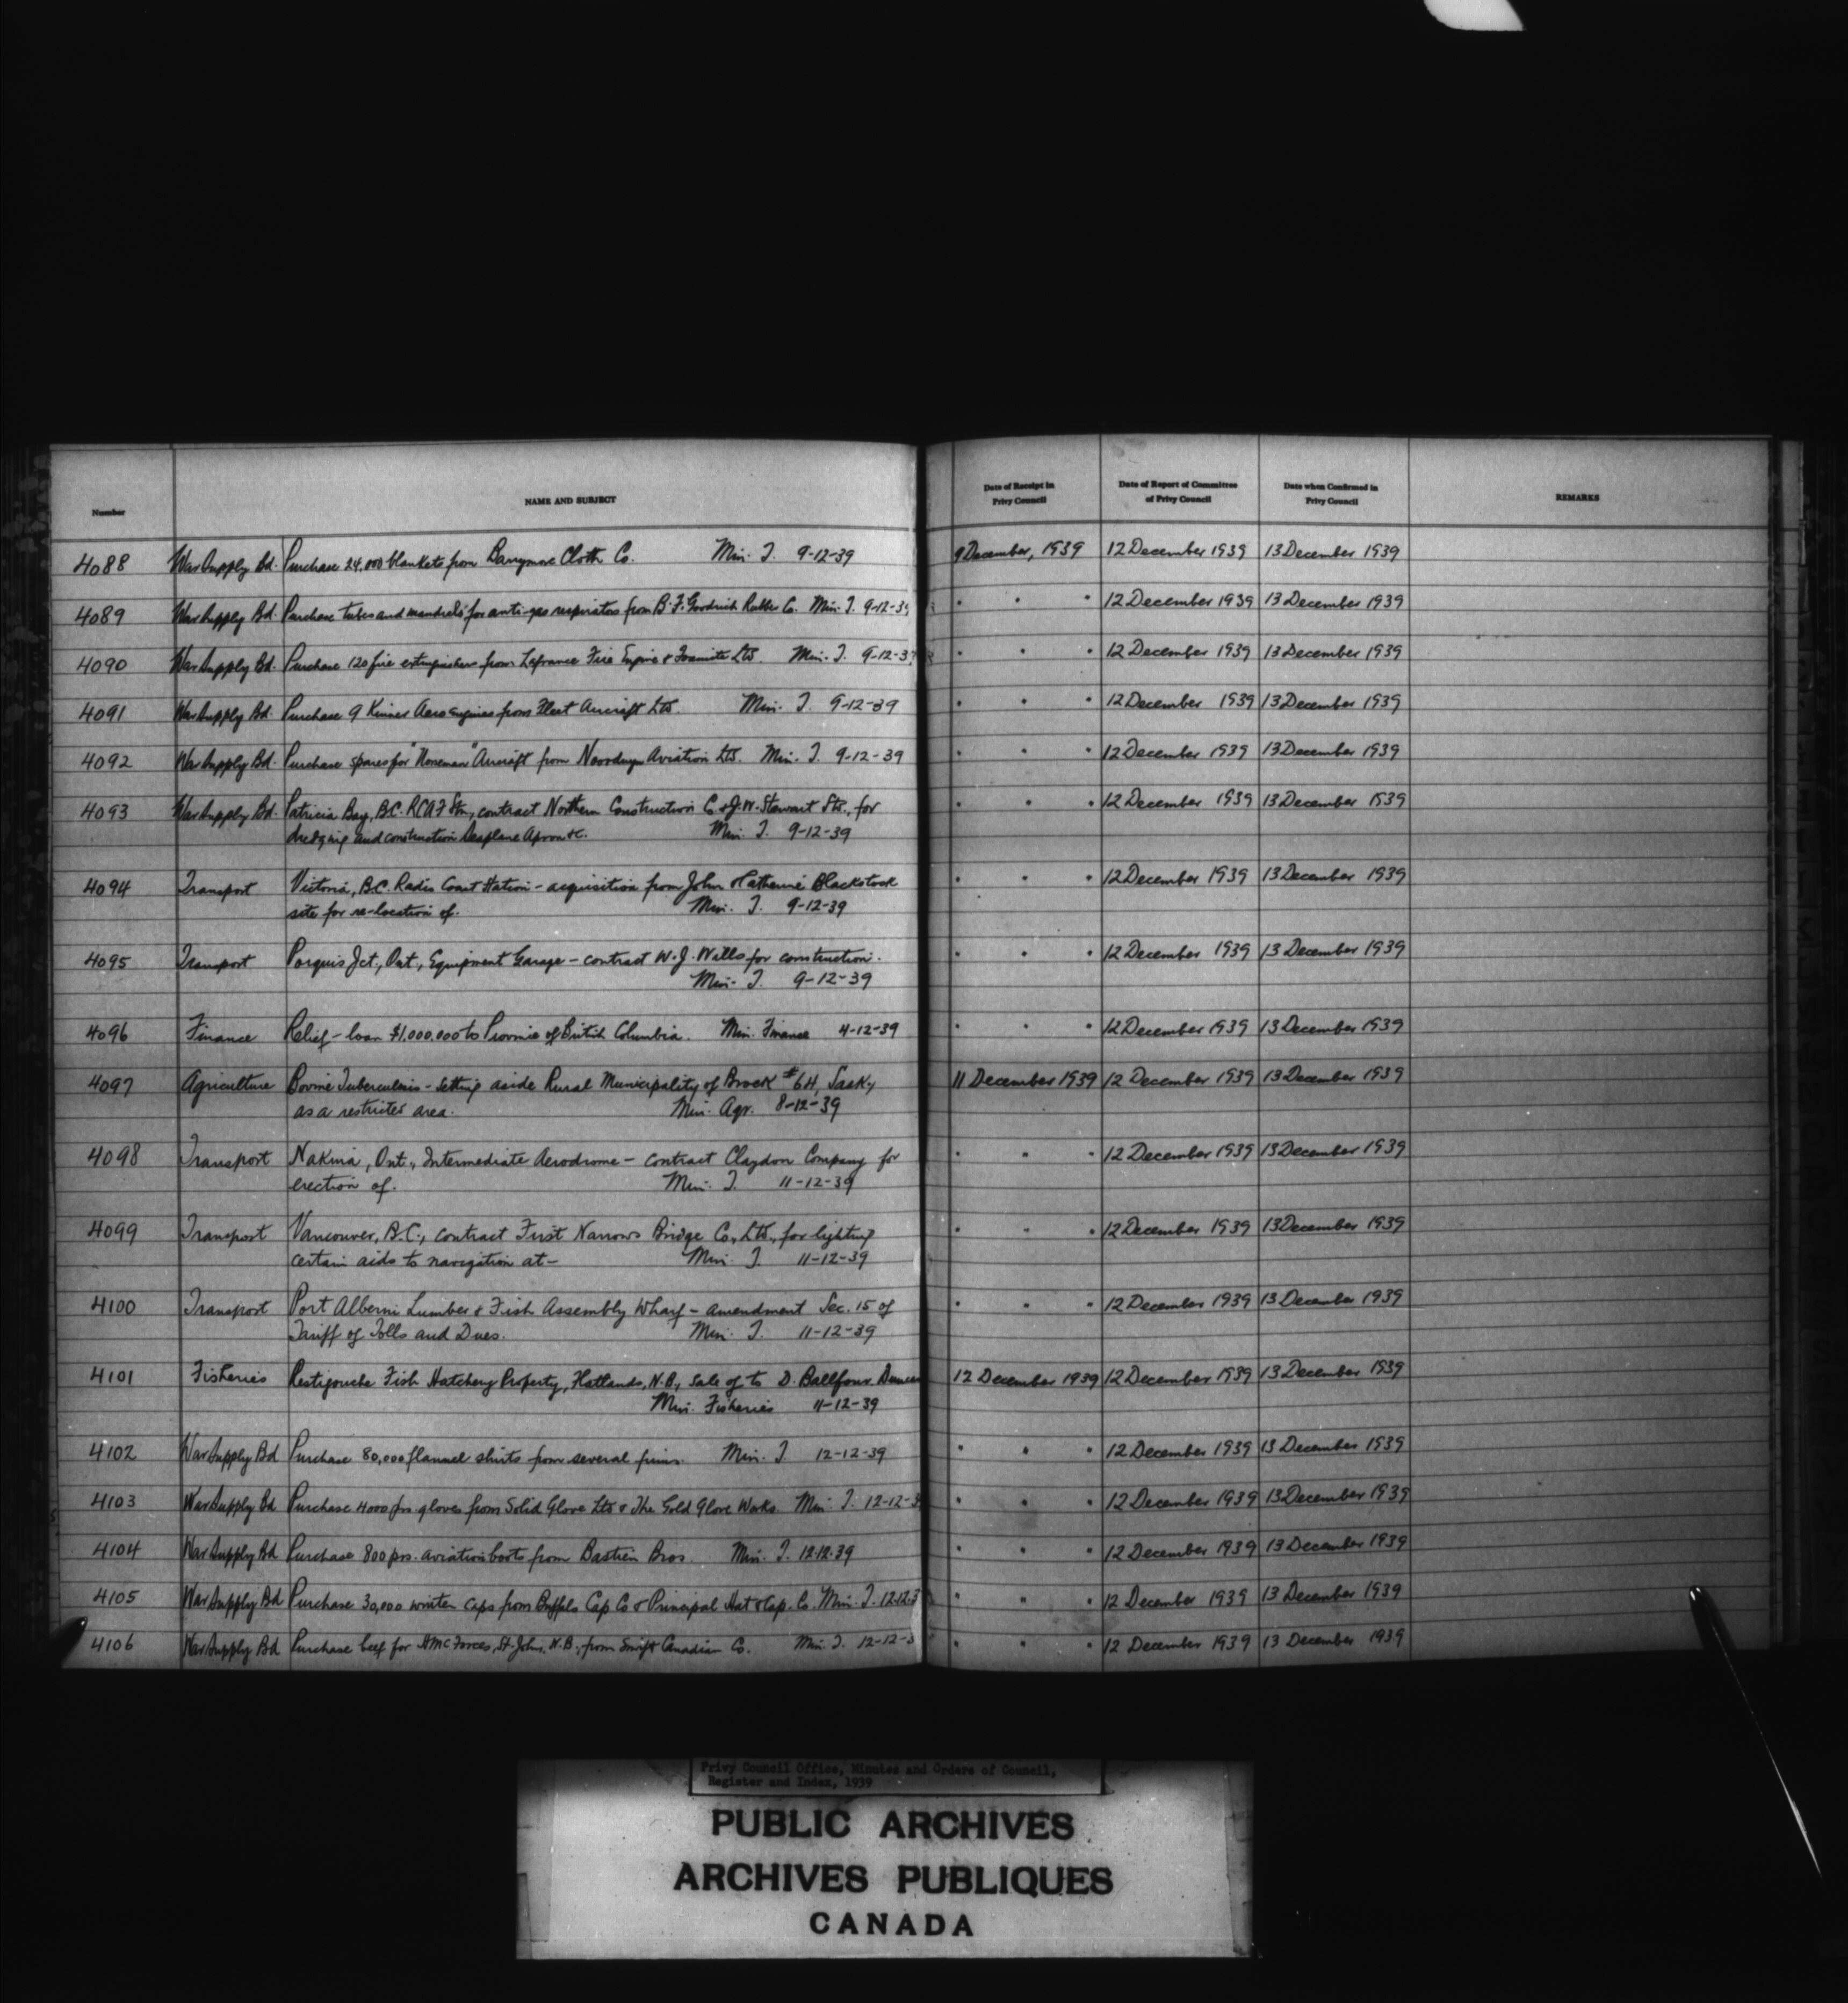 Number NAME AND SUBJECT Date of Receipt in Privy Council Date of Report of Committee of Privy Council Date when Confirmed in Privy Council REMARKS
4088 War Supply Bd. Purchase 24,000 blankets from Barrymore Cloth Co. Min. T. 9-12-39 9 December, 1939 12 December 1939 13 December 1939
4089 War Supply Bd. Purchase tubes and mandrels for anti-gas respirators from B.F. Goodrich Rubber Co. Min. T. 9-12-39 " " " 12 December 1939 13 December 1939
4090 War Supply Bd. Purchase 120 fire extinguishers from Lafrance Fire Engine & Foamite Ltd. Min. T. 9-12-39 " " " 12 December 1939 13 December 1939
4091 War Supply Bd. Purchase 9 Kinner Aero engines from Fleet Aircraft Ltd. Min. T. 9-12-39 " " " 12 December 1939 13 December 1939
4092 War Supply Bd. Purchase spares for "Norseman" Aircraft from Noorduyn Aviation Ltd. Min. T. 9-12-39 " " " 12 December 1939 13 December 1939
4093 War Supply Bd. Patricia Bay, B.C. RCAF Stn, contract Northern Construction Co & J.W. Stewart Ltd., for " " " 12 December 1939 13 December 1939
dredging and construction Seaplane Apron &c. Min. T. 9-12-39
4094 Transport Victoria, B.C. Radio Coast Station - acquisition from John & Catherine Blackstock " " " 12 December 1939 13 December 1939
site for re-location of. Min. T. 9-12-39
4095 Transport Porquis Jct., Ont., Equipment Garage - contract W.J. Wills for construction. " " " 12 December 1939 13 December 1939
Min. T. 9-12-39
4096 Finance Relief - loan $1,000,000 to Province of British Columbia. Min. Finance 4-12-39 " " " 12 December 1939 13 December 1939
4097 Agriculture Bovine Tuberculosis - setting aside Rural Municipality of Brock #64, Sask., 11 December 1939 12 December 1939 13 December 1939
as a restricted area. Min. Agr. 8-12-39
4098 Transport Nakina, Ont., Intermediate Aerodrome - contract Claydon Company for " " " 12 December 1939 13 December 1939
erection of. Min. T. 11-12-39
4099 Transport Vancouver, B.C., contract First Narrows Bridge Co., Ltd., for lighting " " " 12 December 1939 13 December 1939
certain aids to navigation at - Min. T. 11-12-39
4100 Transport Port Alberni Lumber & Fish Assembly Wharf - amendment Sec. 15 of " " " 12 December 1939 13 December 1939
Tariff of Tolls and Dues. Min. T. 11-12-39
4101 Fisheries Restigouche Fish Hatchery Property, Flatlands, N.B., sale of to D. Ballfour Duncan 12 December 1939 12 December 1939 13 December 1939
Min. Fisheries 11-12-39
4102 War Supply Bd Purchase 80,000 flannel shirts from several firms. Min. T. 12-12-39 " " " 12 December 1939 13 December 1939
4103 War Supply Bd Purchase 4000 prs. gloves from Solid Glove Ltd & The Gold Glove Works. Min. T. 12-12-3 " " " 12 December 1939 13 December 1939
4104 War Supply Bd Purchase 800 prs. aviation boots from Bastien Bros. Min. T. 12.12.39 " " " 12 December 1939 13 December 1939
4105 War Supply Bd Purchase 30,000 winter caps from Buffalo Cap Co & Principal Hat & Cap. Co. Min. T. 12.12.3 " " " 12 December 1939 13 December 1939
4106 War Supply Bd Purchase beef for HMC Forces, St. John, N.B., from Swift Canadian Co. Min. T. 12-12-3 " " " 12 December 1939 13 December 1939
Privy Council Office, Minutes and Orders of Council,
Register and Index, 1939
PUBLIC ARCHIVES
ARCHIVES PUBLIQUES
CANADA